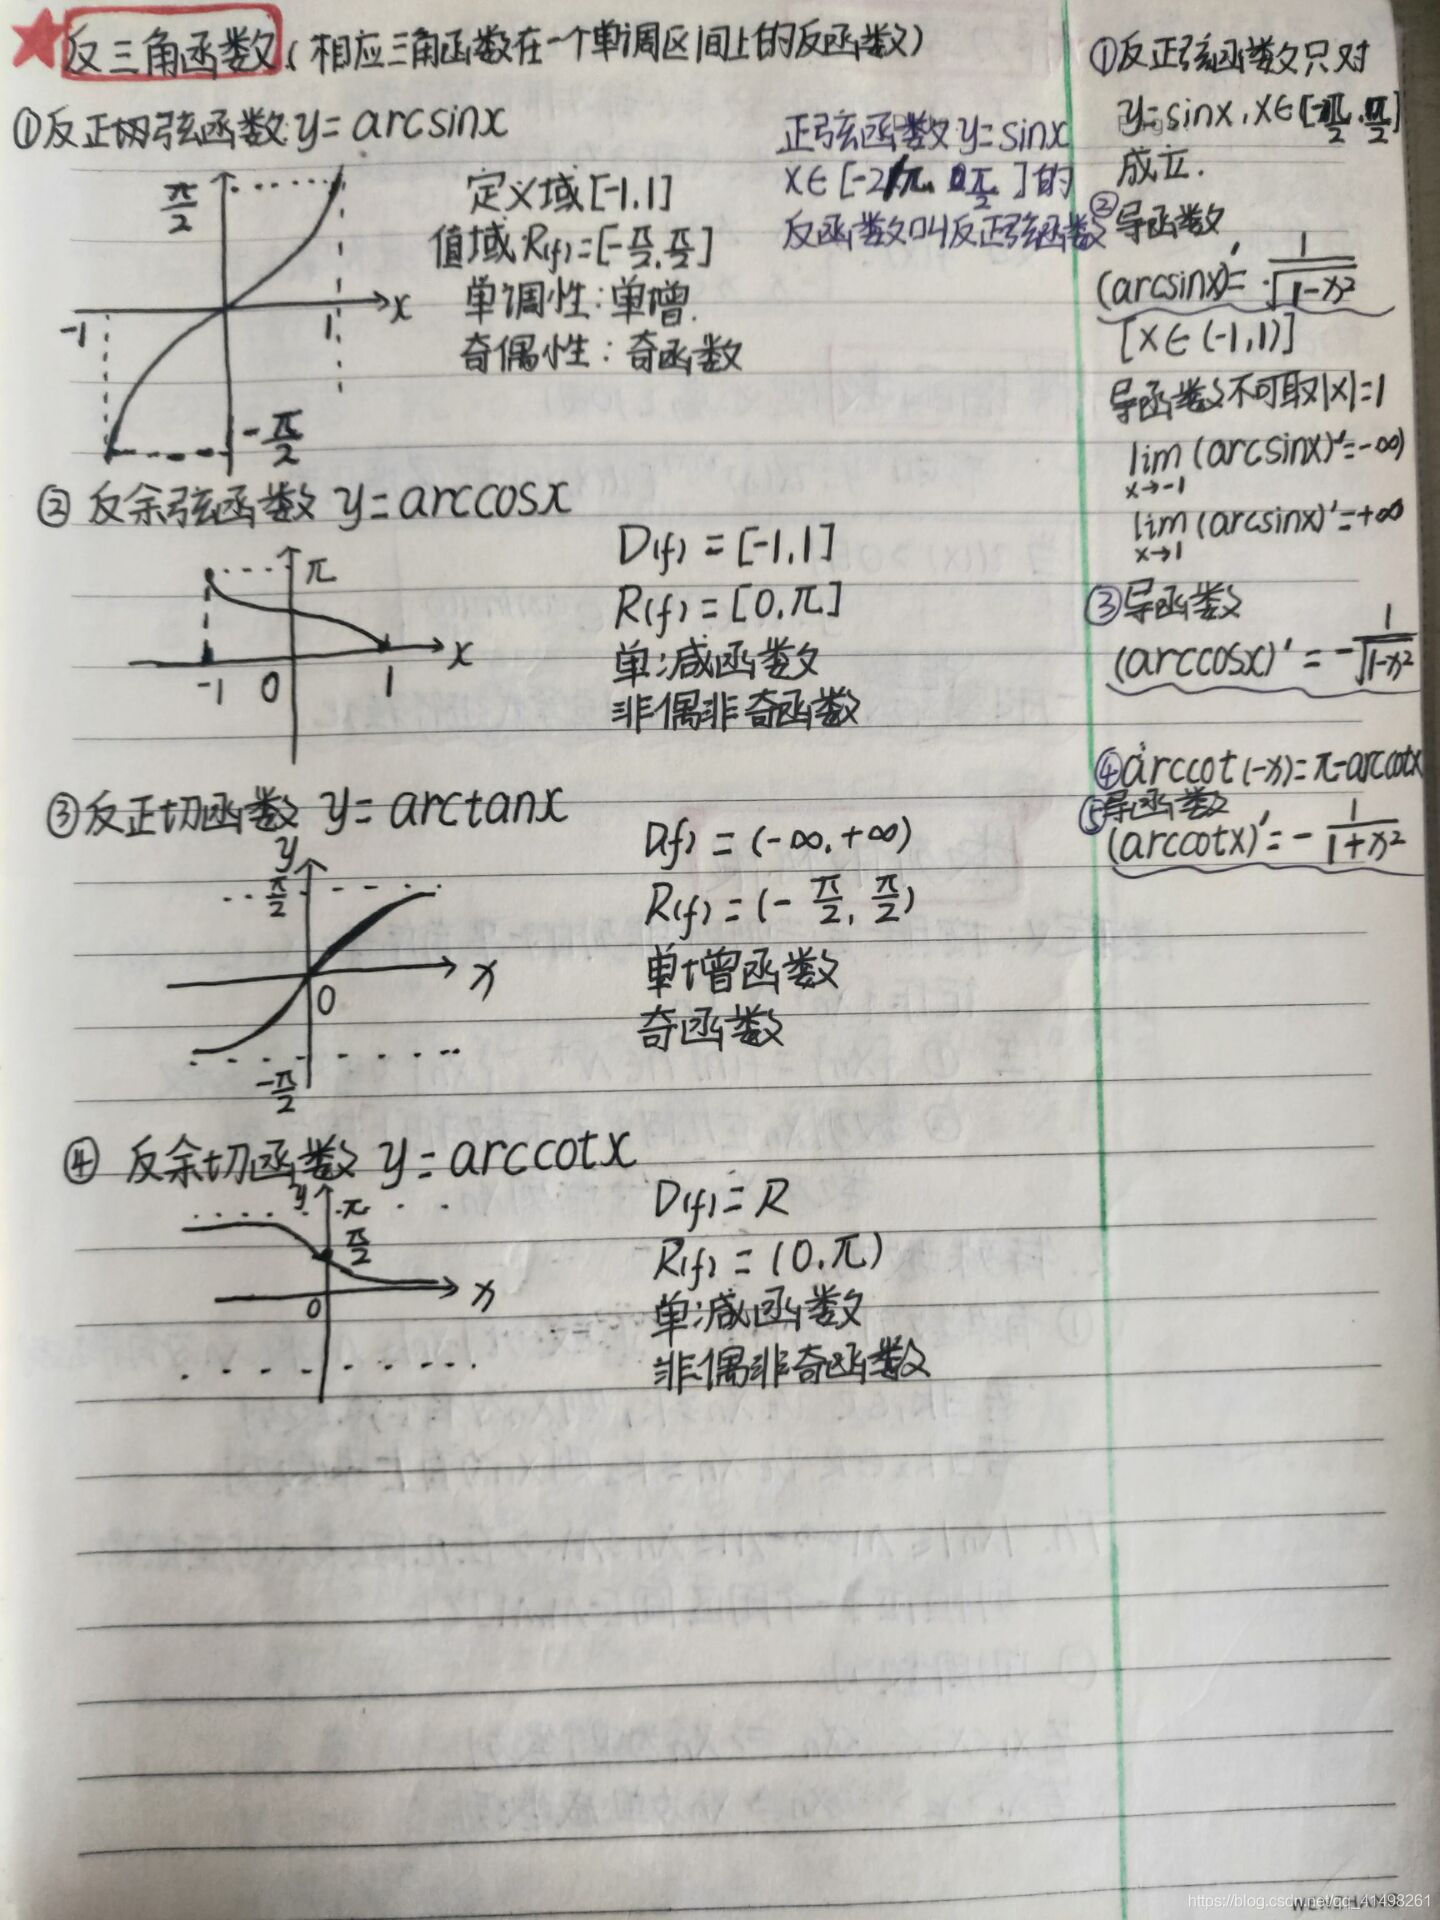 反三角函数(相应三角函数在一个单调区间上的反函数)
①反正切弦函数:y=arcsinx
π/2
-1
1
x
-π/2
定义域[-1,1]
值域R(f)=[-π/2,π/2]
单调性:单增.
奇偶性:奇函数
正弦函数y=sinx
的
反函数叫反正弦函数
②反余弦函数 y=arccosx
π
-1 0 1 x
D(f)=[-1,1]
R(f)=[0,π]
单减函数
非偶非奇函数
③反正切函数 y=arctanx
y
π/2
x
0
-π/2
D(f)=(-∞,+∞)
R(f)=(-π/2,π/2)
单增函数
奇函数
④ 反余切函数 y=arccotx
y
π
π/2
x
0
D(f)=R
R(f)=(0,π)
单减函数
非偶非奇函数
①反正弦函数只对
y=sinx,x∈[-π/2,π/2]
成立.
②导函数
(arcsinx)'=1/√(1-x²)
[x∈(-1,1)]
导函数不可取|x|=1
lim x→-1 (arcsinx)'=-∞)
lim x→1 (arcsinx)'=+∞
③导函数
(arccosx)'=-1/√(1-x²)
④arccot(-x)=π-arccotx
⑤导函数
(arccotx)'=-1/(1+x²)
https://blog.csdn.net/qq_41498261